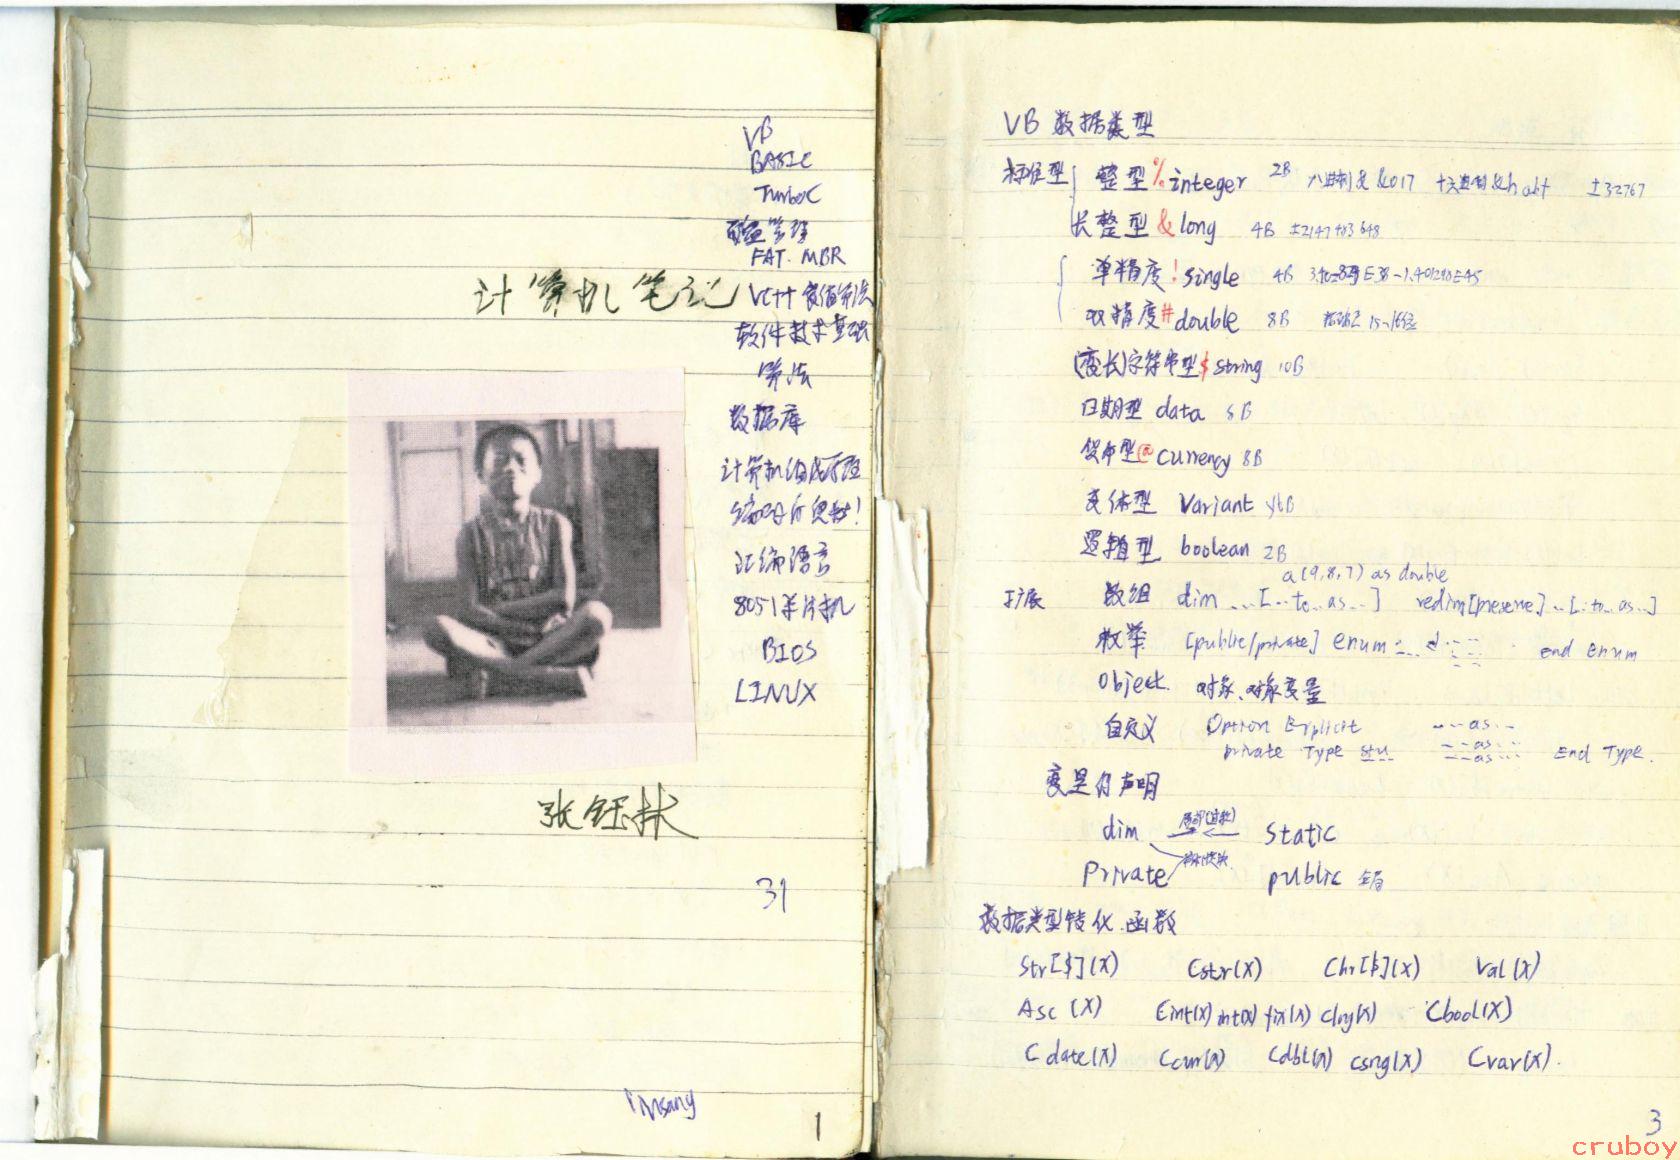 VB
BASIC
TurboC
磁盘管理
FAT. MBR
计算机笔记
VC++ 数值算法
软件技术基础
算法
数据库
计算机组成原理
汇编语言
8051单片机
BIOS
LINUX
张钰林
31
1
VB 数据类型
标准型 整型 % integer 2B 八进制 &O17 十六进制 &h abf ±32767
长整型 & long 4B ±2147483648
单精度 ! single 4B
双精度 # double 8B 15~16位
(变长)字符串型 $ string 10B
日期型 data 8B
货币型 @ currency 8B
变体型 Variant
逻辑型 boolean 2B
a(9,8,7) as double
扩展 数组 dim ...[...to...as...] redim[preserve]...[...to...as...]
枚举 [public/private] enum end enum
Object. 对象、对象变量
自定义 Option Explicit ...as...
private Type stu ...as... End Type.
变量的声明
dim static
Private public 全局
数据类型转化.函数
Str[$](X) Cstr(X) Chr[$](X) Val(X)
Asc (X) Cint(X) int(x) fix(x) clng(x) Cbool(X)
Cdate(X) Ccur(x) Cdbl(x) csng(X) Cvar(X).
3
cruboy